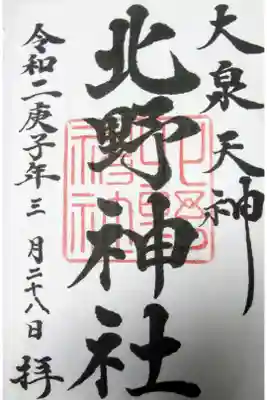 大泉天神
北野神社
令和二庚子年三月二十八日 拝
北野神社